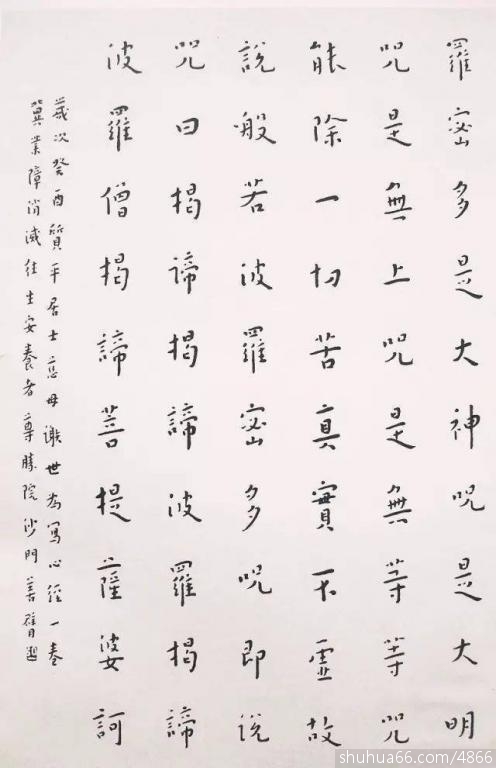 羅宻多是大神呪是大明
呪是無上呪是無等等呪
能除一切苦真實不虛故
說般若波羅宻多呪即説
呪曰揭諦揭諦波羅揭諦
波羅僧揭諦菩提薩婆訶
歲次癸酉質平居士母謝世為寫心經一卷
冀業障消滅往生安養者尊勝院沙門善臂
shuhua66.com/4866